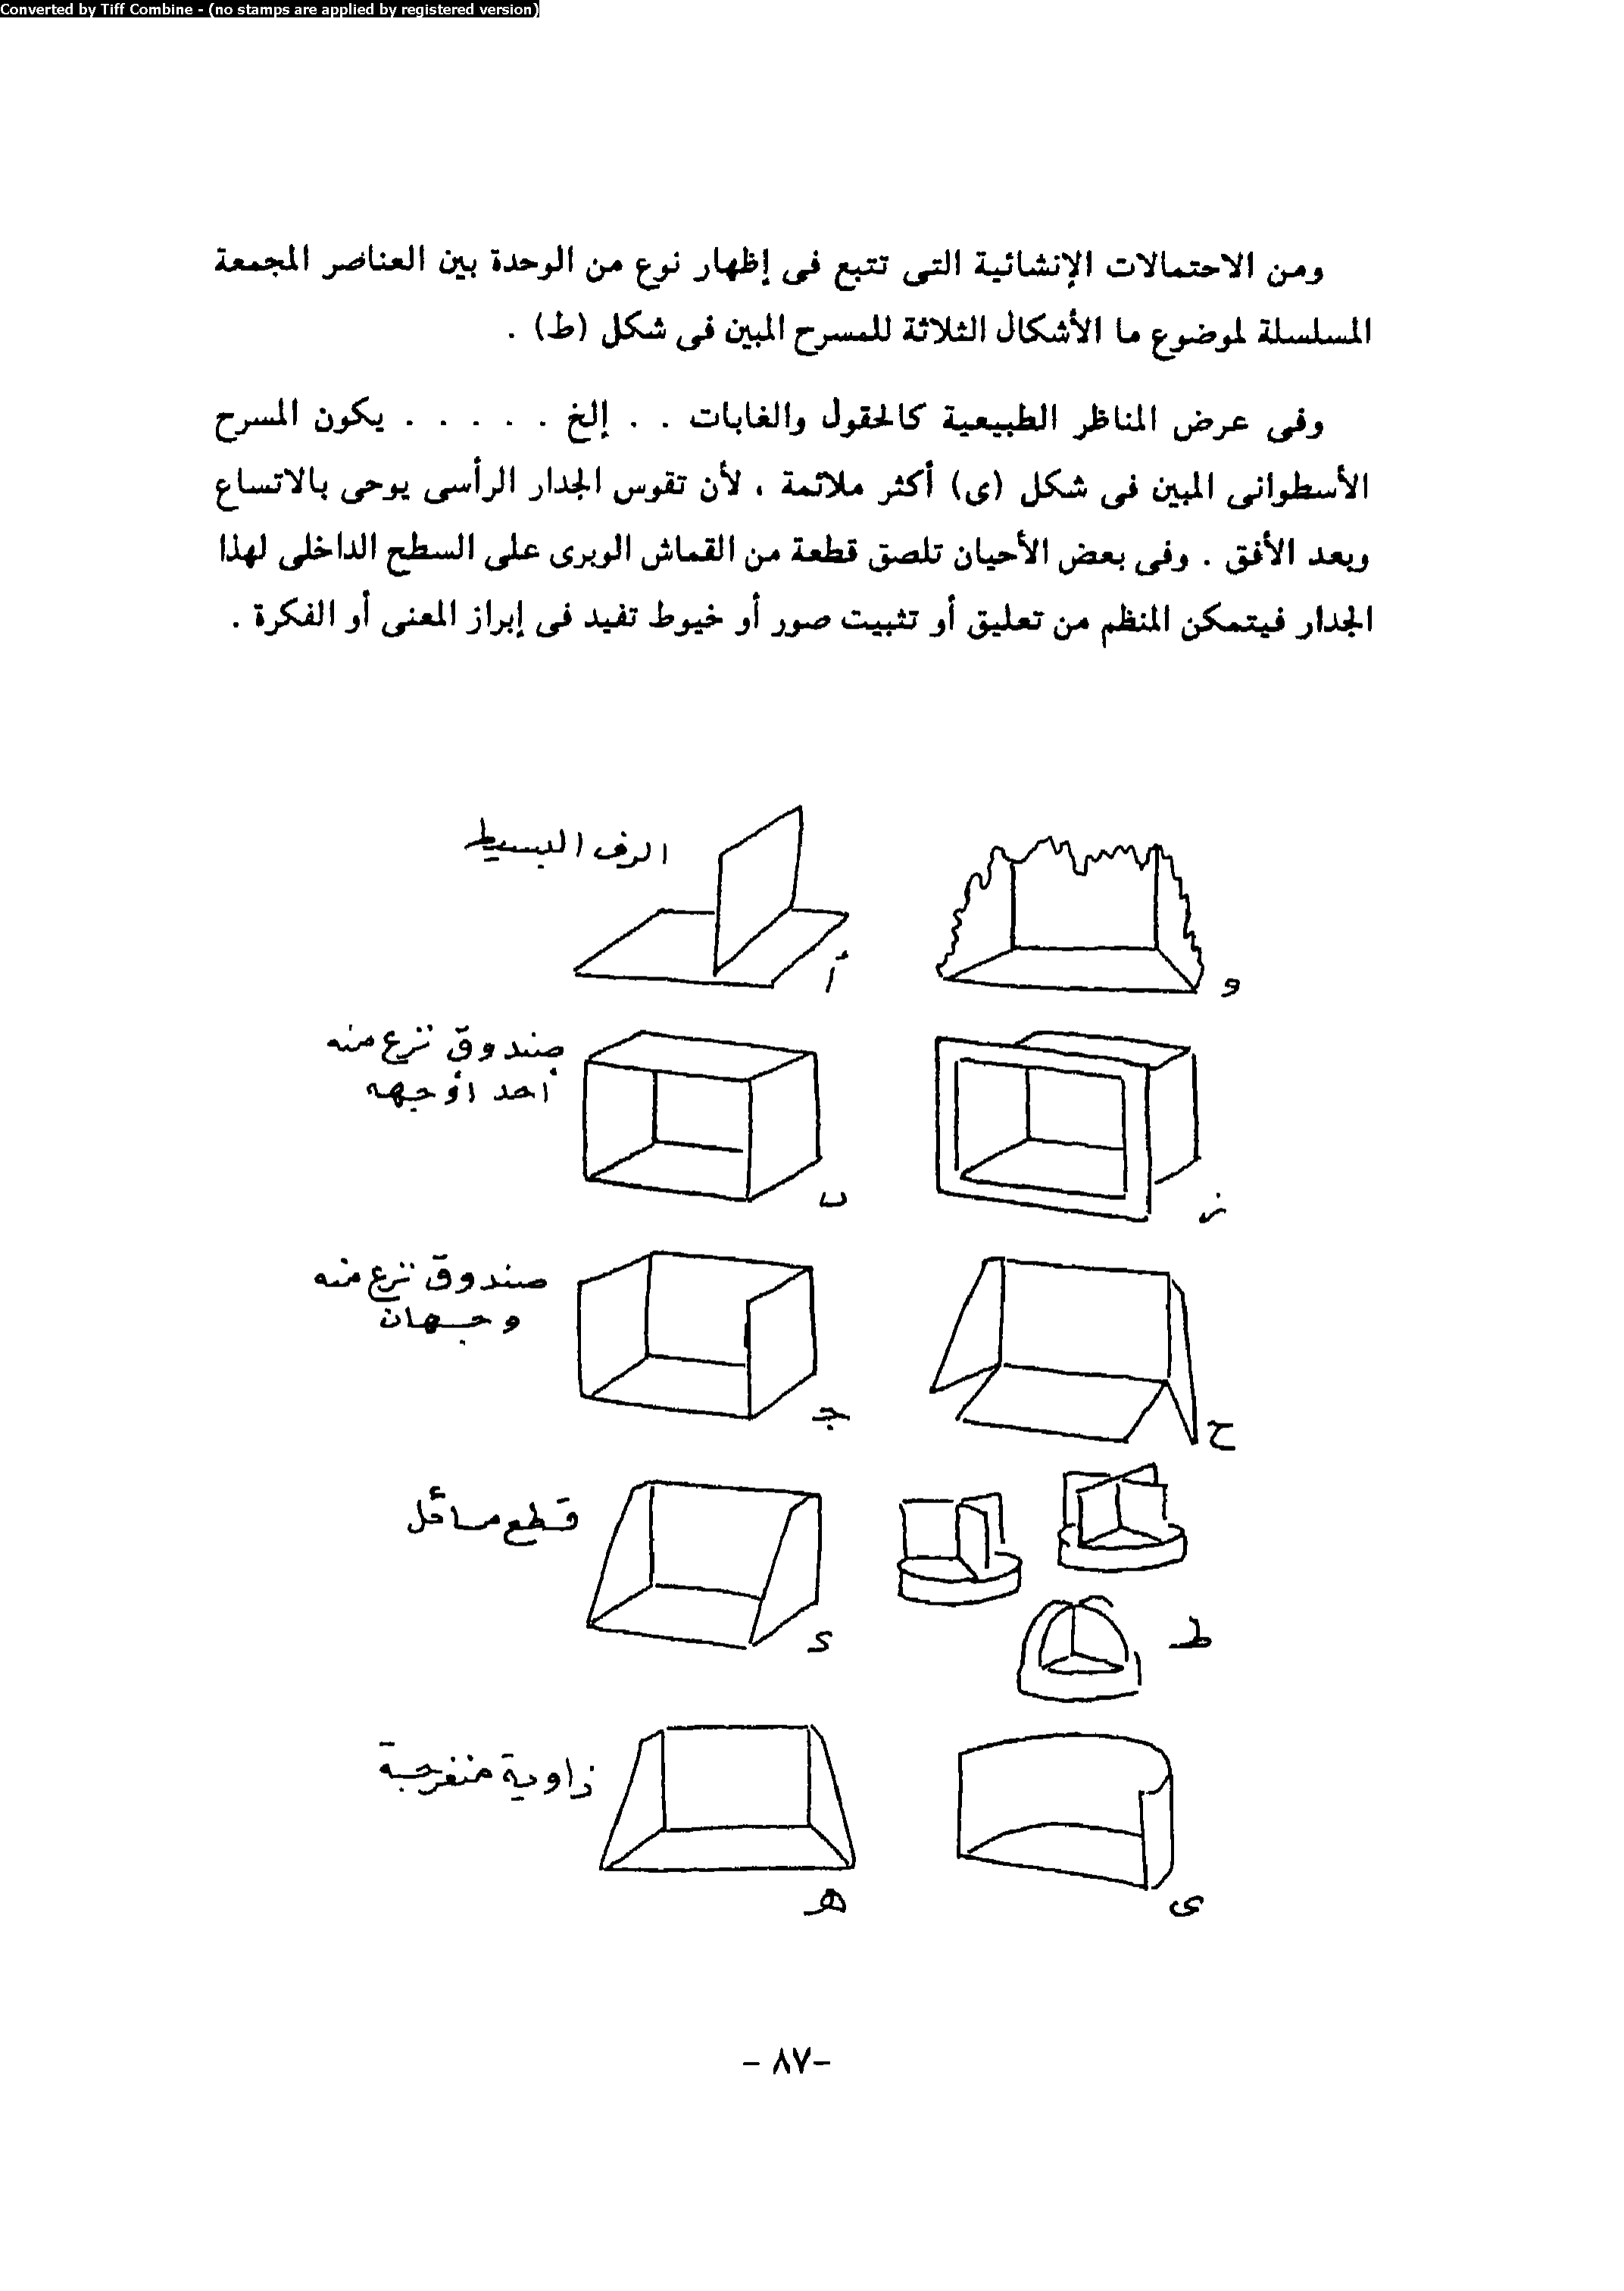 Converted by Tiff Combine - (no stamps are applied by registered version)
ومن الاحتمالات الإنشائية التى تتبع فى إظهار نوع من الوحدة بين العناصر المجمعة
المسلسلة لموضوع ما الأشكال الثلاثة للمسرح المبين فى شكل (ط) .
وفى عرض المناظر الطبيعية كالحقول والغابات . . إلخ . . . . . يكون المسرح
الأسطوانى المبين فى شكل (ى) أكثر ملائمة ، لأن تقوس الجدار الرأسى يوحى بالاتساع
وبعد الأفق . وفى بعض الأحيان تلصق قطعة من القماش الوبرى على السطح الداخلى لهذا
الجدار فيتمكن المنظم من تعليق أو تثبيت صور أو خيوط تفيد فى إبراز المعنى أو الفكرة .
الرف البسيط
أ
و
صندوق نزع منه
أحد أوجهه
ب
ز
صندوق نزع منه
وجهان
جـ
ح
قطع مائل
د
ط
زاوية منفرجة
هـ
ى
- ٨٧-